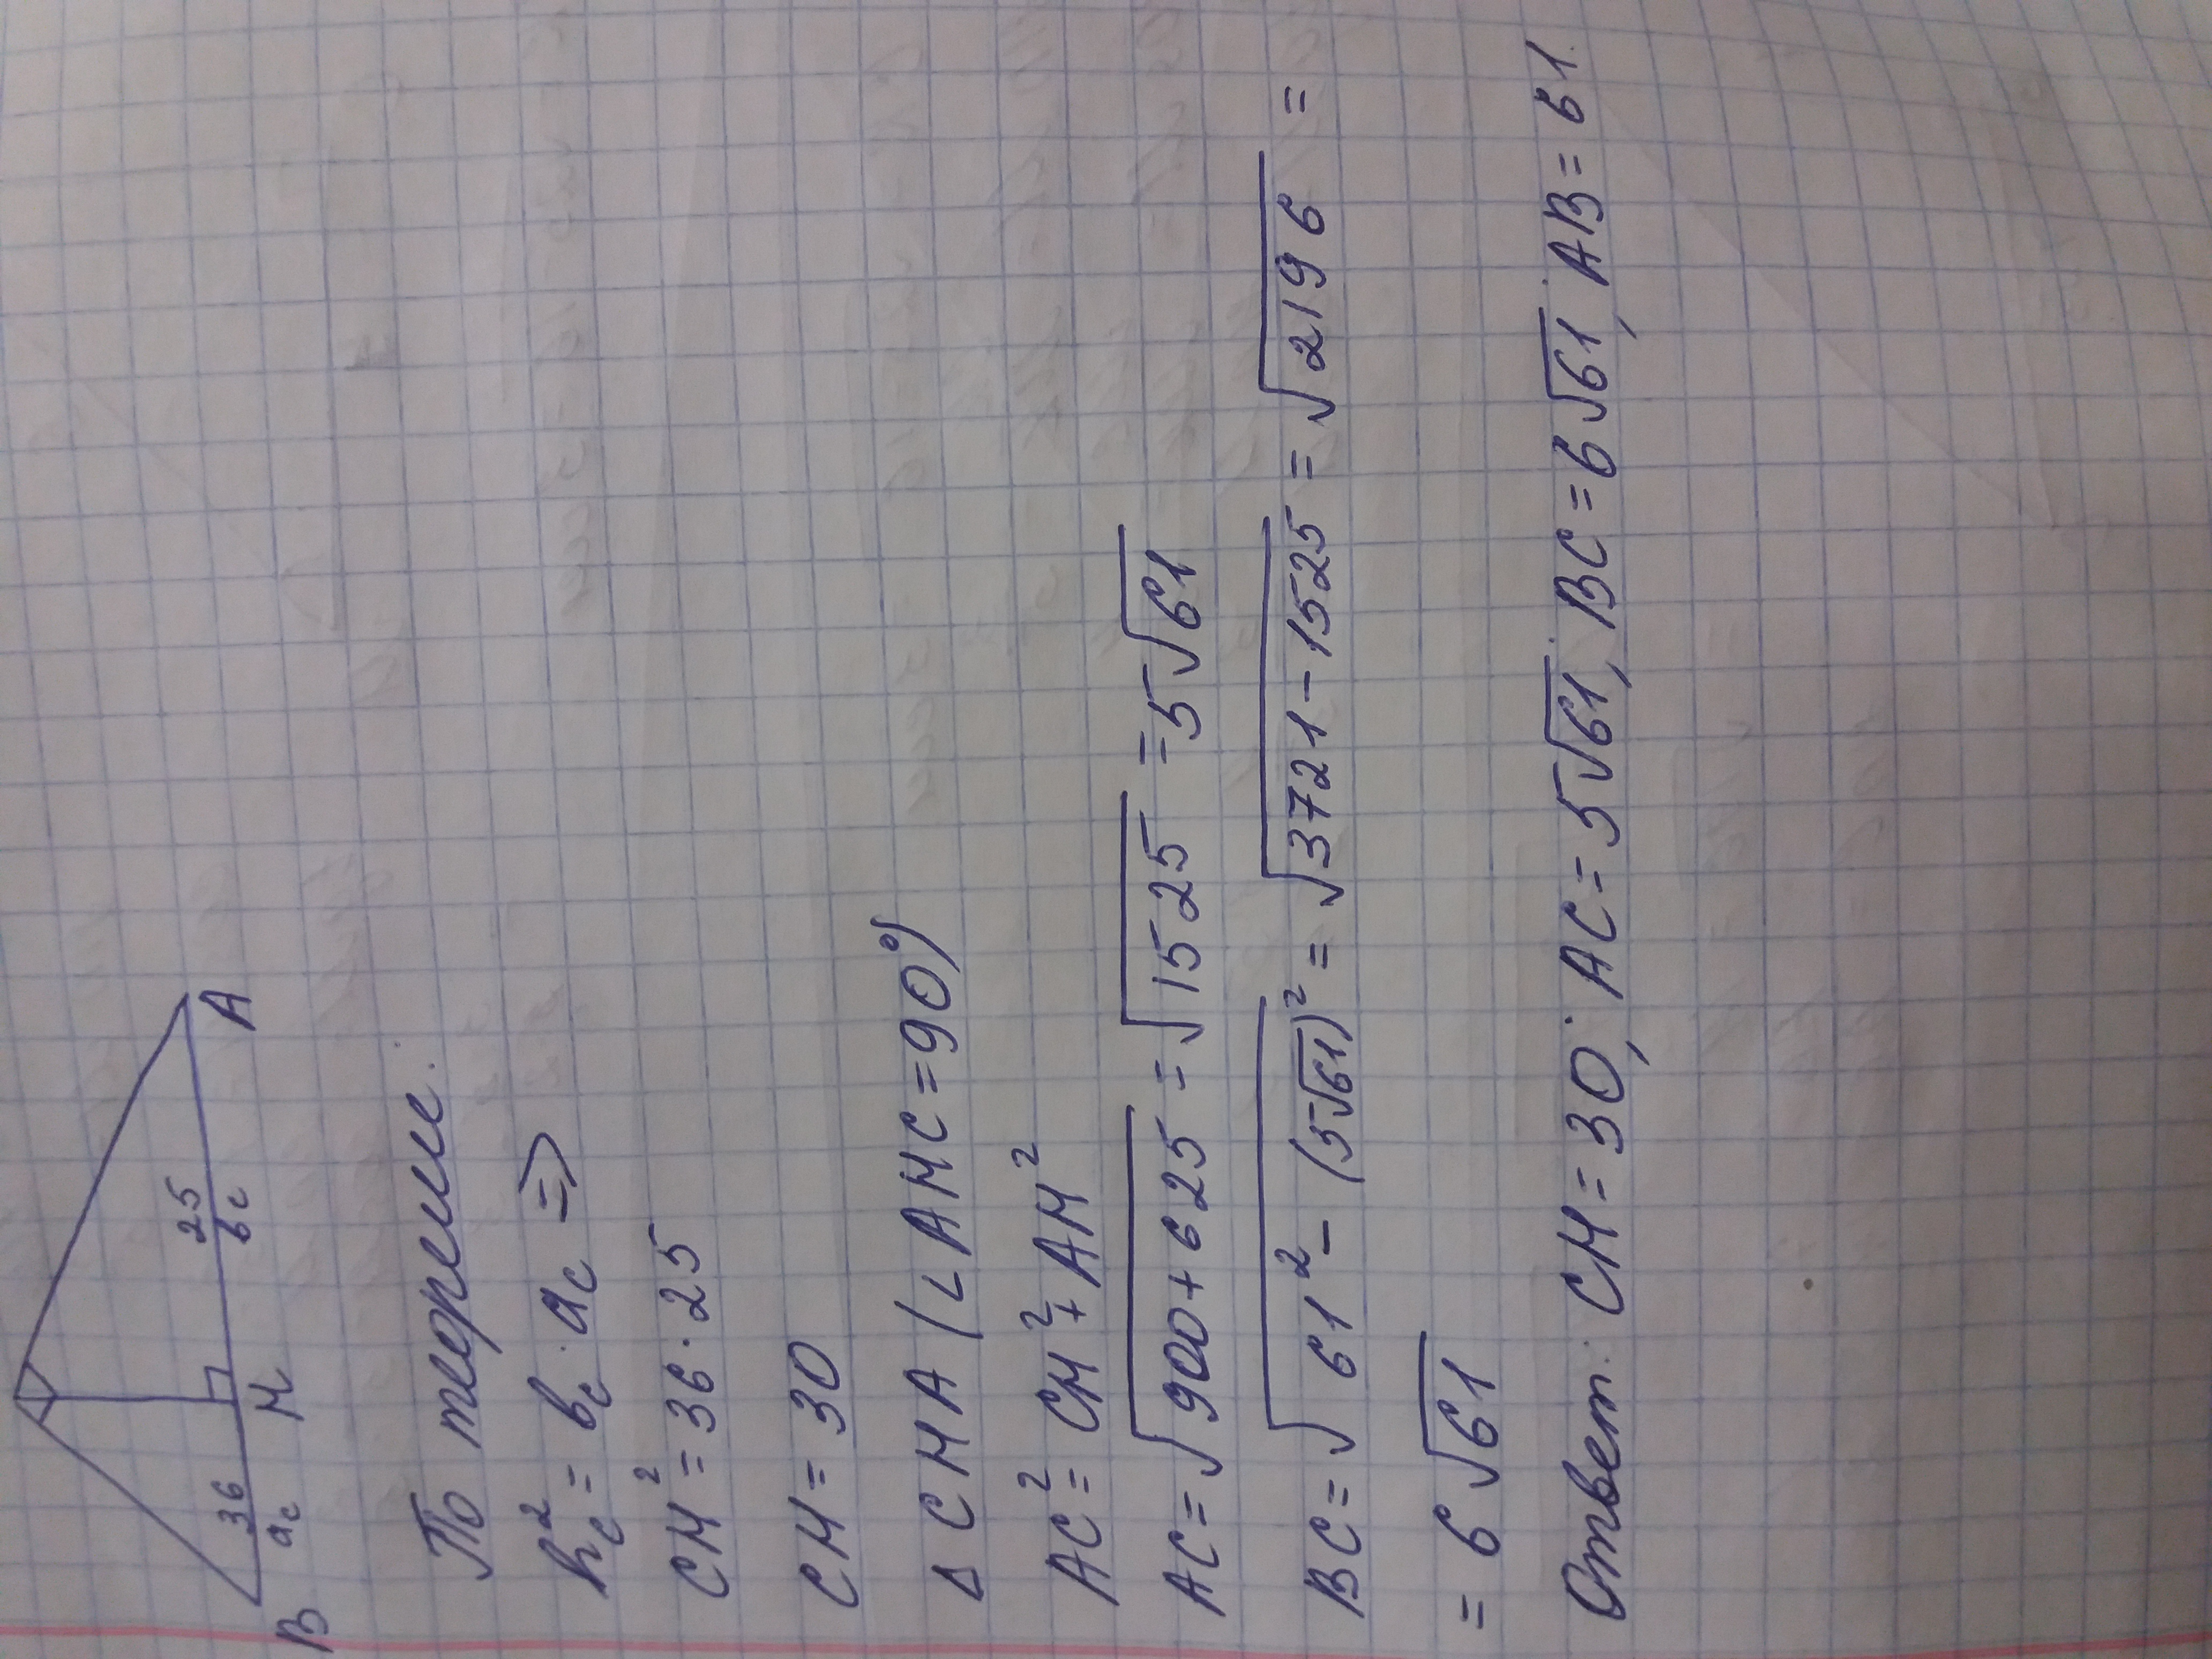 36 25
B a_c H b_c A
По теореме:
h_c² = b_c · a_c ⇒
CH² = 36 · 25
CH = 30
Δ CHA (∠AHC = 90°)
AC² = CH² + AH²
AC = √900 + 625 = √1525 = 5√61
BC = √61² - (5√61)² = √3721 - 1525 = √2196 =
= 6√61
Ответ: CH = 30; AC = 5√61; BC = 6√61; AB = 61.